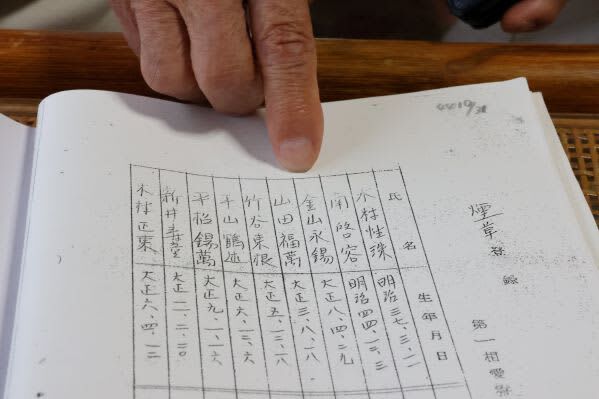 煙草登録 第一相愛
氏名 生年月日
木村性珠 明治三七、三、二一
南啓容 明治四四、一二、三
金山永錫 大正八、四、二九
山田福萬 大正三、八、一八
竹谷東根 大正五、三、一八
平山鵬 大正六、一二、六
平松錫萬 大正九、一、一六
新井壽童 大正二、二、二〇
木村正東 大正六、四、一二